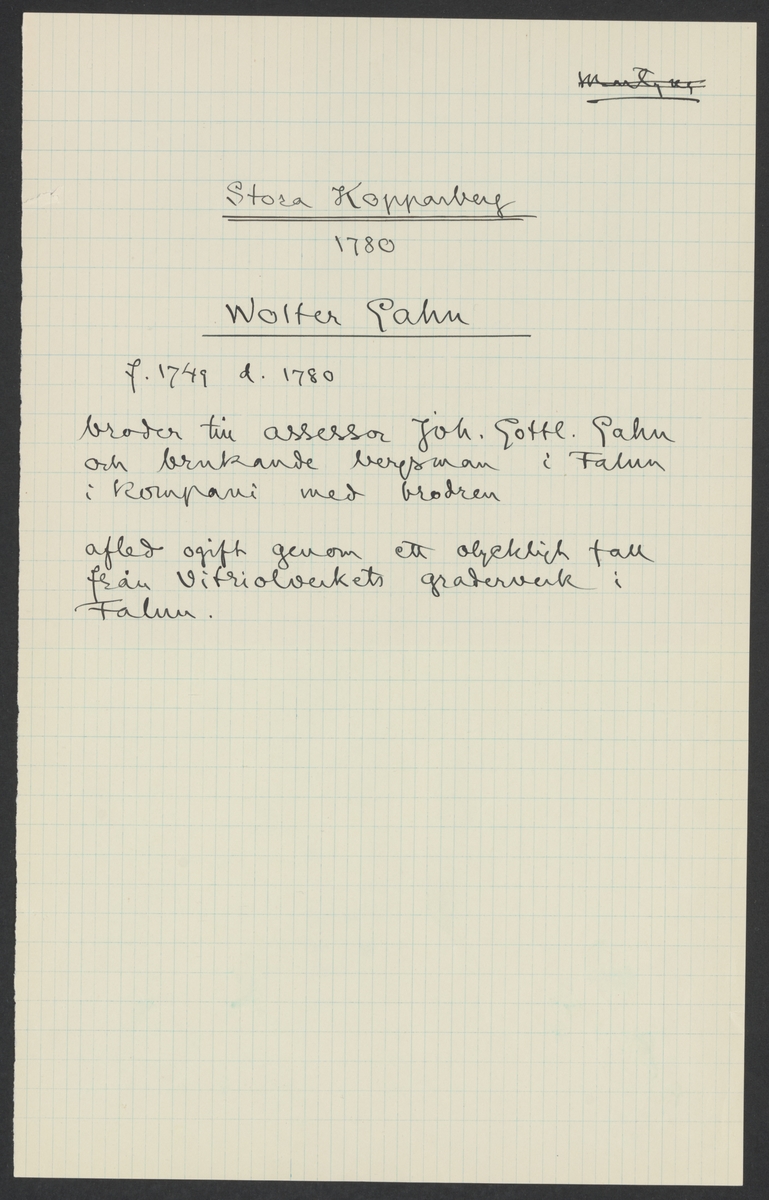 Stora Kopparberg
1780
Wolter Gahn
f. 1749 d. 1780
broder till assessor Joh. Gottl. Gahn
och brukande bergsman i Falun
i kompani med brodren
afled ogift genom ett olyckligt fall
från Vitriolverkets graderverk i
Falun.